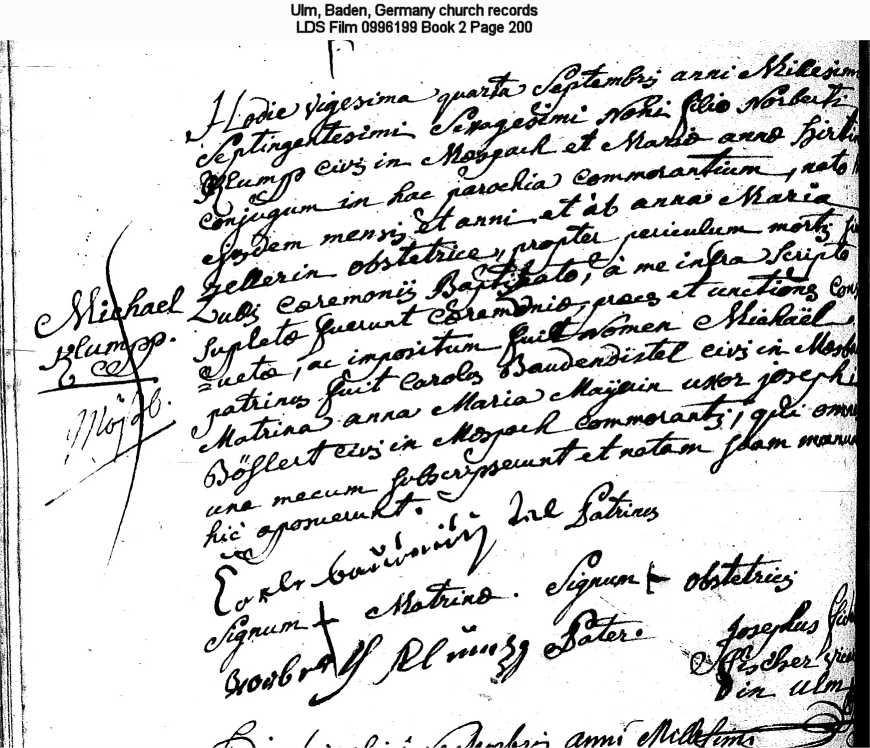 Ulm, Baden, Germany church records
LDS Film 0996199 Book 2 Page 200
Hodie vigesima quarta Septembris anni Millesimi
Septingentesimi Sexagesimi Nohi filio Norberti
Klumpp civis in Mosbach et Mariæ annæ
conjugum in hac parochia commorantium, nato
ejusdem mensis et anni et ab anna Maria
Zellerin obstetrice, propter periculum mortis
Baptizato, à me infra Scripto
Supletæ fuerunt Cæremoniæ, preces et unctiones
=uetæ, ac impositum fuit Nomen Michaël
patrinus fuit Carolus Baudendistel civis in
Matrina anna Maria Maÿerin uxor josephi
Bößlert civis in Mosbach commorantis, qui
una mecum subscripserunt et notam suam
hic aposuerunt.
Michael
Klumpp.
Patrinus
Signum + Matrinæ. Signum + obstetricis
Klumpp Pater.
Josephus
Fischer
in Ulm
anni Millesimi